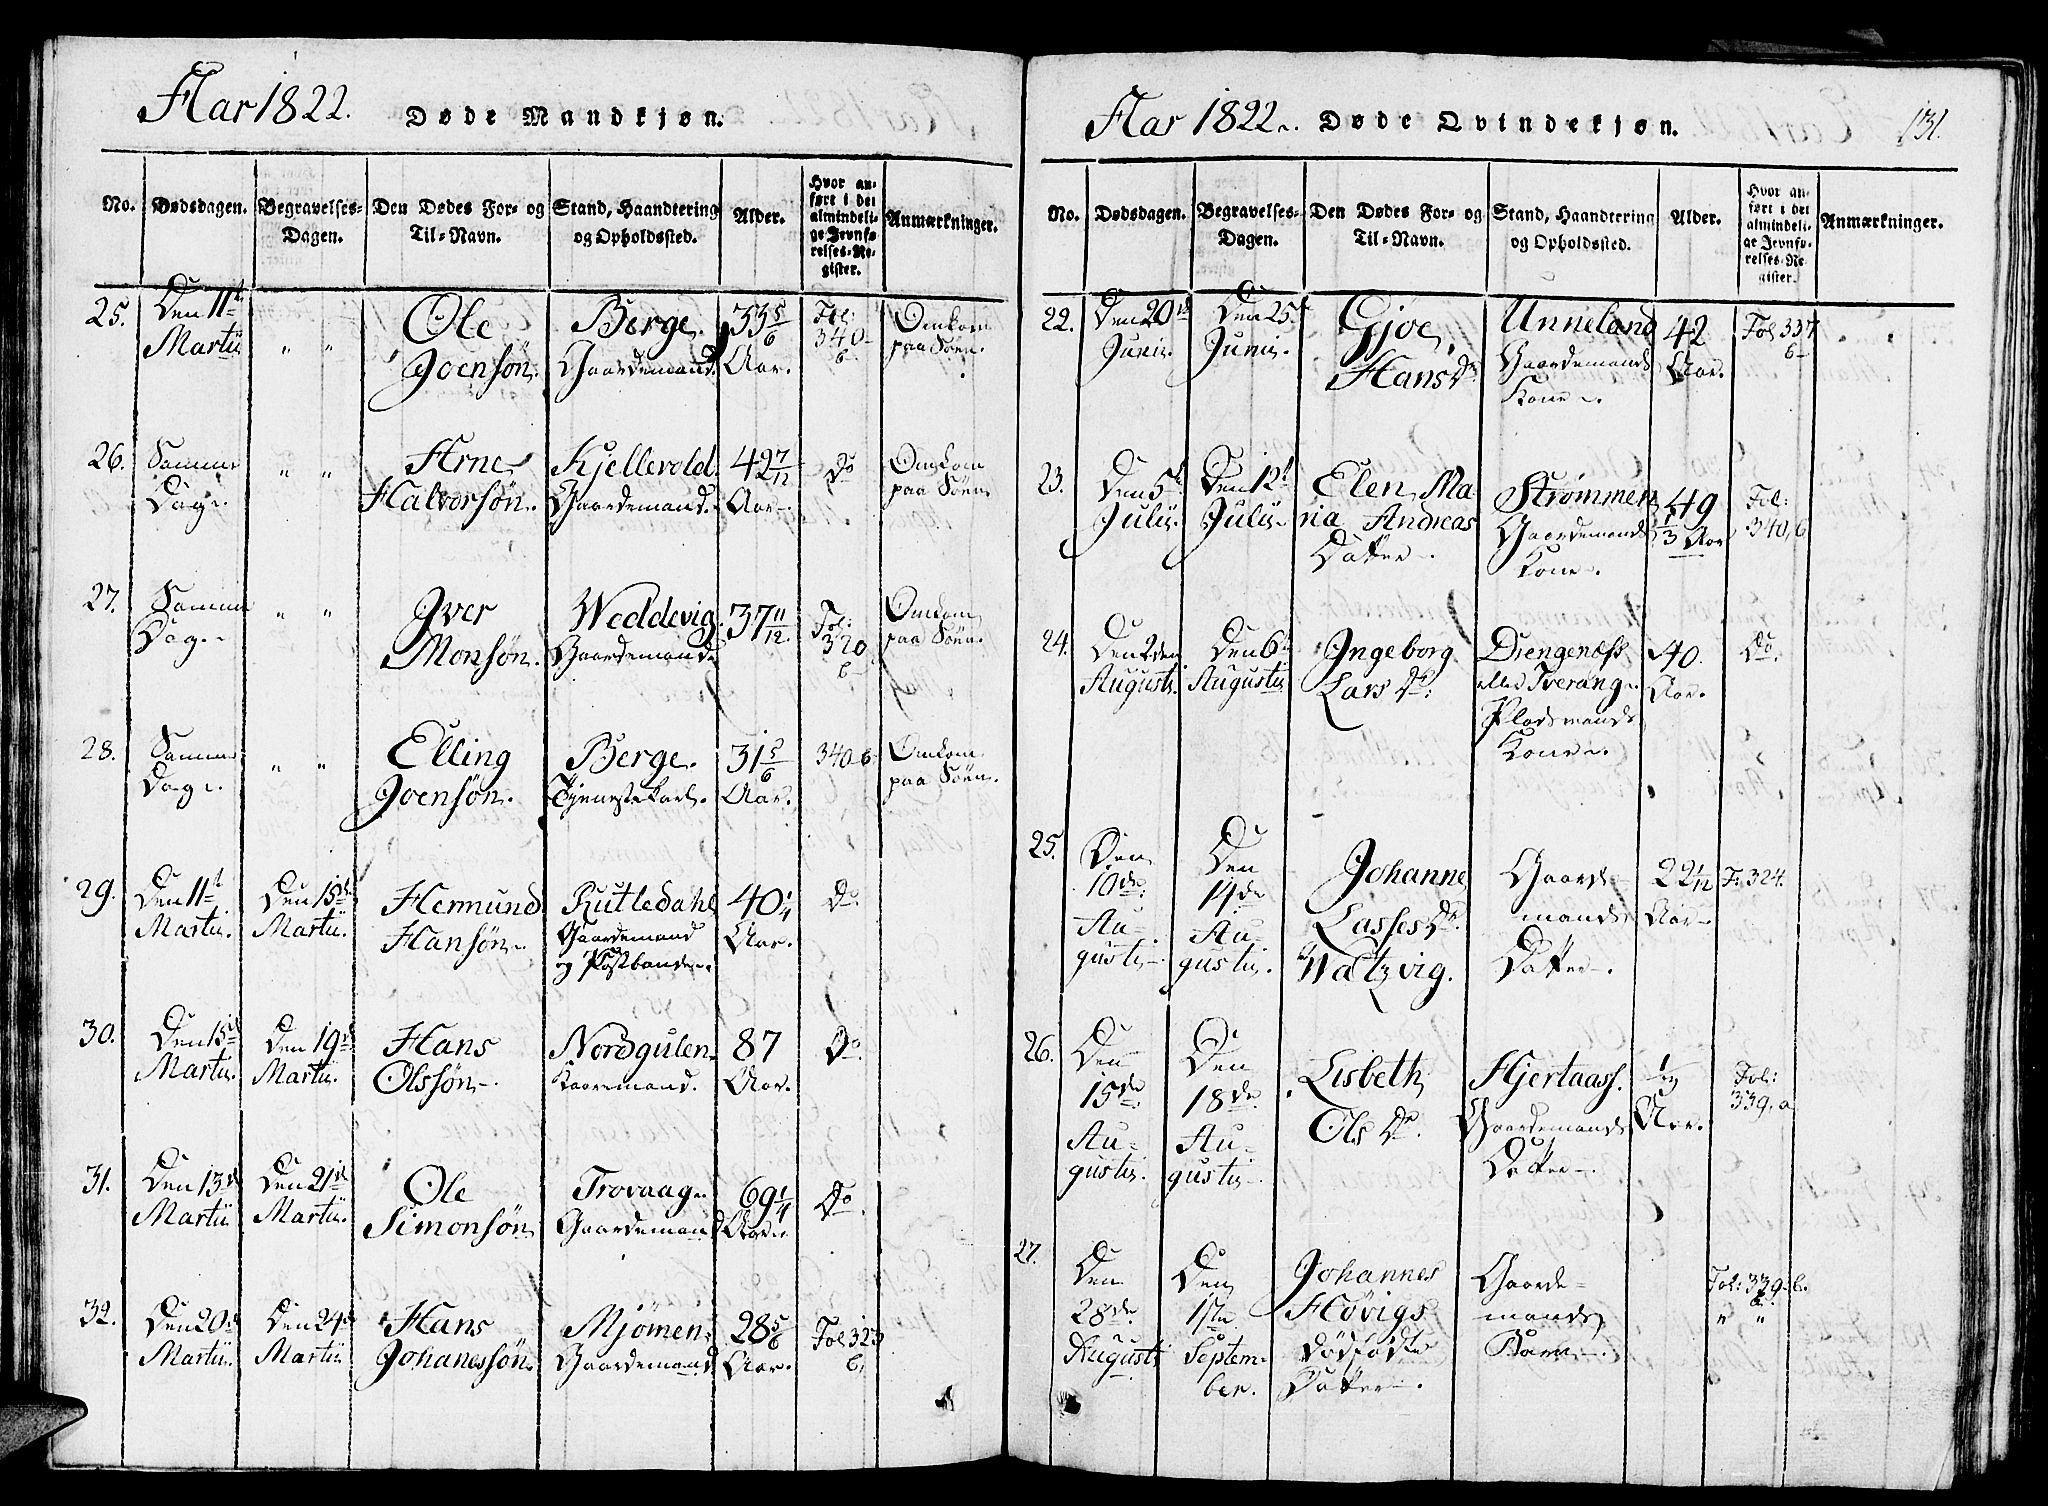 Aar 1822. Døde Mandkjøn.
No. Dødsdagen. Begravelses-Dagen. Den Dødes For- og Til-Navn. Stand, Haandtering og Opholdssted. Alder. Hvor anført i det almindelige Jevnførelses-Register. Anmærkninger.
25. Den 11te Martii " " Ole Joensøn. Berge. Gaardemand. 33 5/6 Aar. Fol: 340 b Omkom paa Søen.
26. Samme Dag. " " Arne Halvorsøn. Kjellevold. Gaardemand. 42 7/12 Aar. Do Omkom paa Søen.
27. Samme Dag. " " Iver Monsøn. Weddevig. Gaardemand 37 11/12. Fol: 320 b Omkom paa Søen.
28. Samme Dag. " " Elling Joensøn. Berge. Tjenestekarl. 31 5/6 Aar. 340 b Omkom paa Søen.
29. Den 11te Martii. Den 15de Martii. Hermund Hansøn. Rutledahl Gaardemand og Postbonde. 40 1/4 Aar. Do
30. Den 15de Martii. Den 19de Martii. Hans Olssøn. Nordgulen. Kaaremand. 87 Aar. Do.
31. Den 13de Martii Den 21de Martii. Ole Simonsøn Trovaag. Gaardemand 69 1/4 Aar. Do.
32. Den 20de Martii. Den 24de Martii Hans Johanessøn. Mjømen. Gaardemand 28 5/6 Aar. Fol 323 b.
Aar 1822. Døde Qvindekjøn. 131.
No. Dødsdagen. Begravelses-Dagen. Den Dødes For- og Til-Navn. Stand, Haandtering og Opholdssted. Alder. Hvor anført i det almindelige Jevnførelses-Register. Anmærkninger.
22. Den 20de Junii. Den 25de Junii. Gjøe Hans Dr. Unneland Gaardemands Kone. 42 Aar. Fol 337 b
23. Den 5te Julii. Den 12te Julii. Elen Maria Andreas Datter. Strømmen Gaardemands Kone. 49 1/3 Aar Fol: 340, b
24. Den 2den Augusti. Den 6te Augustii Ingeborg Lars Dr. Drengenæss eller Tverang. Pladsmands Kone. 40. Aar. Do.
25. Den 10de Augustii. Den 14de Augustii. Johanne Lasses Dr. Watzvig. Gaardemands Datter. 22 1/12 Aar F. 324.
26. Den 15de Augustii. Den 18de Augustii. Lisbeth Ols Dr. Hjertaass. Gaardemands Datter. Aar. Fol: 339, a
27. Den 28de Augusti Den 1ste September. Johannes Høvigs dødfødte Datter. Gaardemands Barn. Fol: 339. b. " "